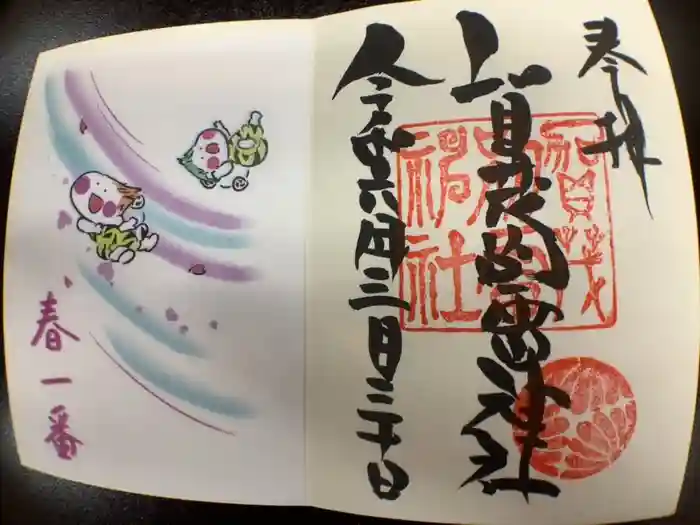 奉拝
賀茂別雷神社
令和六年三月二十日
賀茂別雷神社
春一番